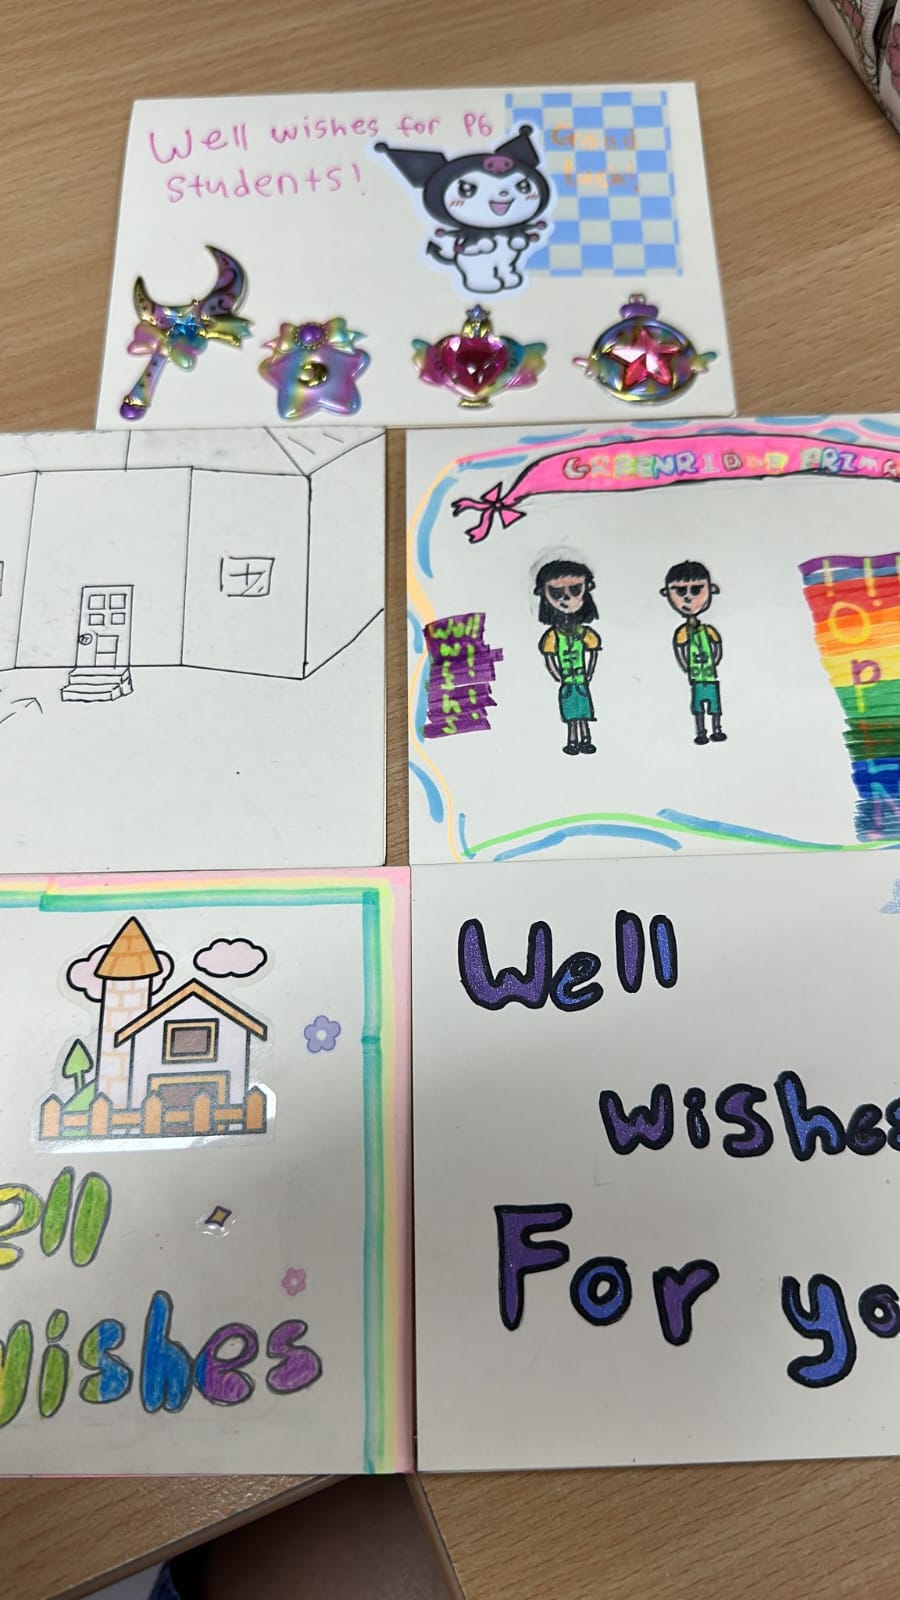 Well wishes for P6
Students!
Good
luck!
GREENRIDGE PRIMA
Well
Wishes
ell
Wishes
Well
wishes
For yo